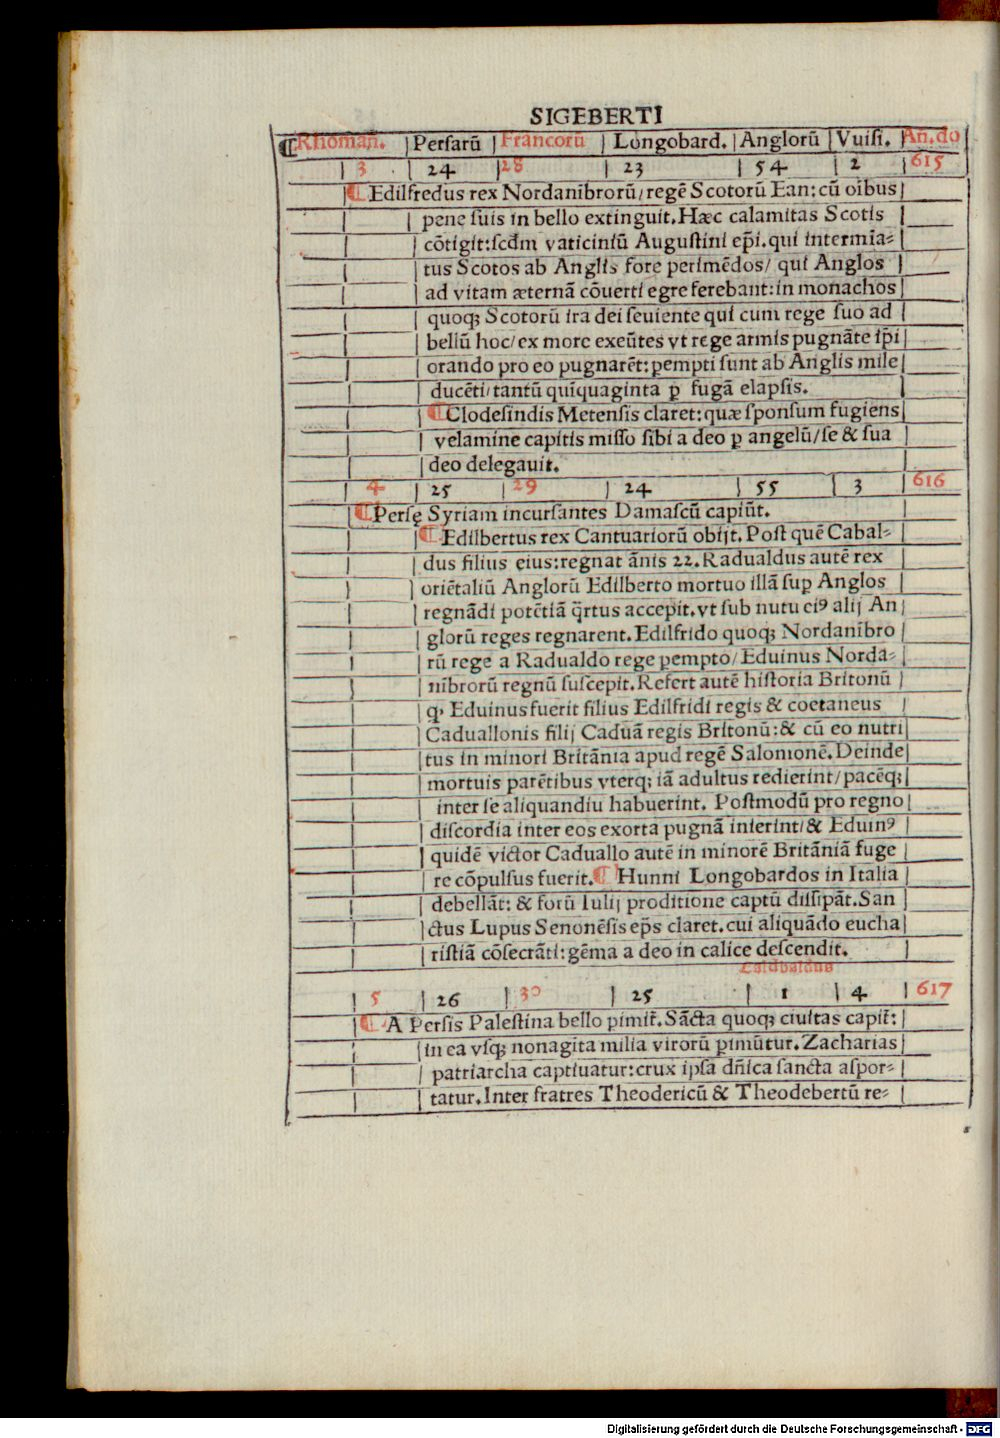 SIGEBERTI
¶Rhomañ. Persarū Francorū Longobard. Anglorū Vuisi. Añ.do
3 24 28 23 54 2 615
¶Edilfredus rex Nordanibrorū/regē Scotorū Ean: cū oibus
pene suis in bello extinguit. Hæc calamitas Scotis
cōtigit: scďm vaticiniū Augustini ep̄i. qui intermia⸗
tus Scotos ab Anglis fore perimēdos/ qui Anglos
ad vitam æternā cōuerti egre ferebant: in monachos
quoqꝫ Scotorū ira dei seuiente qui cum rege suo ad
bellū hoc/ex more exeūtes vt rege armis pugnāte ip̄i
orando pro eo pugnarēt: pempti sunt ab Anglis mile
ducēti/tantū quiquaginta ꝑ fugā elapsis.
¶Clodesindis Metensis claret: quæ sponsum fugiens
velamine capitis misso sibi a deo ꝑ angelū/se & sua
deo delegauit.
4 25 29 24 55 3 616
¶Persę Syriam incursantes Damascū capiūt.
¶Edilbertus rex Cantuariorū obijt. Post quē Cabal⸗
dus filius eius: regnat ānis 22. Radualdus autē rex
oriētaliū Anglorū Edilberto mortuo illā suꝑ Anglos
regnādi potētiā q̄rtus accepit. vt sub nutu eiꝰ alij An
glorū reges regnarent. Edilfrido quoqꝫ Nordanibro
rū rege a Radualdo rege pempto/Eduinus Norda⸗
nibrorū regnū suscepit. Refert autē historia Britonū
ꝙ Eduinus fuerit filius Edilfridi regis & coetaneus
Caduallonis filij Caduā regis Britonū: & cū eo nutri
tus in minori Britānia apud regē Salomonē. Deinde
mortuis parētibus vterqꝫ iā adultus redierint/pacēqꝫ
inter se aliquandiu habuerint. Postmodū pro regno
discordia inter eos exorta pugnā inierint/& Eduinꝰ
quidē victor Caduallo autē in minorē Britāniā fuge
re cōpulsus fuerit. ¶Hunni Longobardos in Italia
debellāt: & forū Iulij proditione captū dissipāt. San
ctus Lupus Senonēsis ep̄s claret. cui aliquādo eucha
ristiā cōsecrāti: gēma a deo in calice descendit.
5 26 30 25 1 4 617
¶A Persis Palestina bello pimit̄. Sācta quoqꝫ ciuitas capit̄:
in ea vsqꝫ nonagīta milia virorū ꝑimūtur. Zacharias
patriarcha captiuatur: crux ipsa dn̄ica sancta aspor⸗
tatur. Inter fratres Theodericū & Theodebertū re⸗
Digitalisierung gefördert durch die Deutsche Forschungsgemeinschaft - DFG